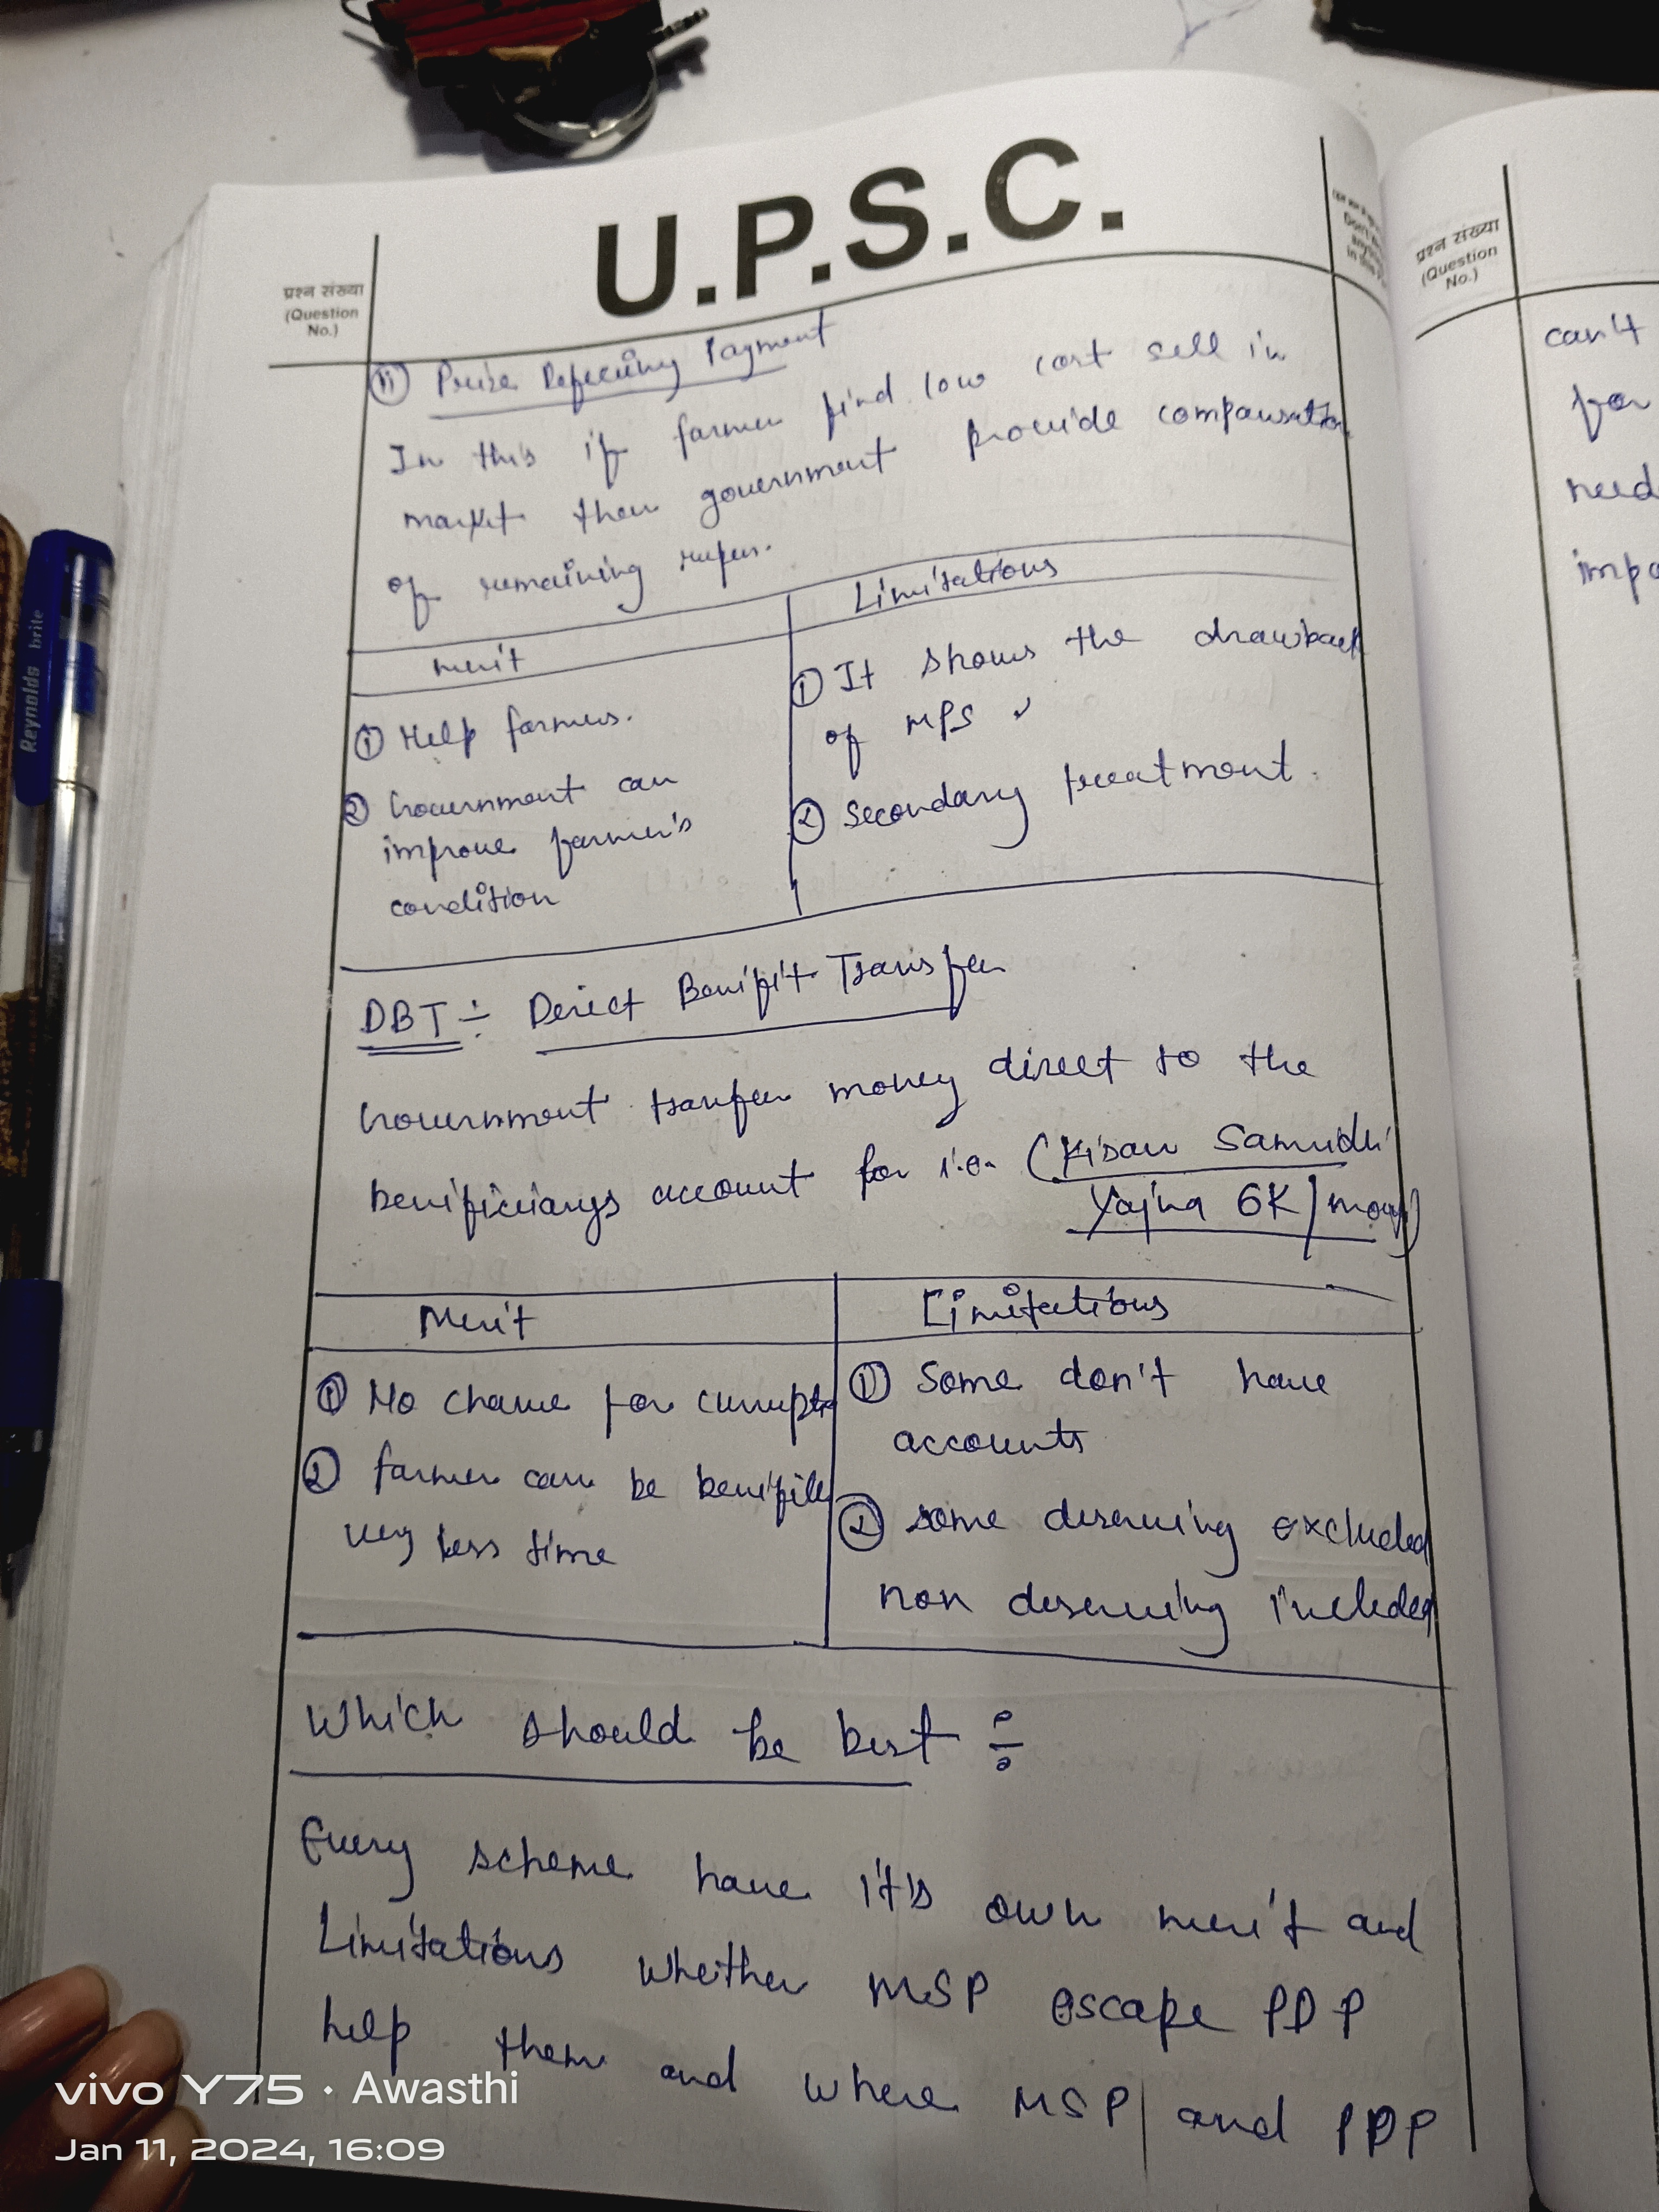 U.P.S.C.
प्रश्न संख्या
(Question
No.)
ii) Prize Deficiency Payment
In this if farmer find low cost sell in
market then government provide compansation
of remaining rupee.
merit
Limitations
① Help farmers.
② Government can
improve farmer's
condition
① It shows the drawback
of MPS
② Secondary treatment.
DBT ÷ Derect Benifit Transfer
Government tranfer money direct to the
benificiarys account for i.e. (Kisan Samridhi
Yojna 6K/
Merit
Limitations
① No chance for
② farmer can be
very less time
① Some don't have
accounts
② some deserving excluded
non deserving included
Which should be best ÷
Every scheme have it's own merit and
Limitations whether MSP escape PDP
help them and where MSP and PDP
प्रश्न संख्या
(Question
No.)
can't
for
need
Reynolds brite
vivo Y75 · Awasthi
Jan 11, 2024, 16:09